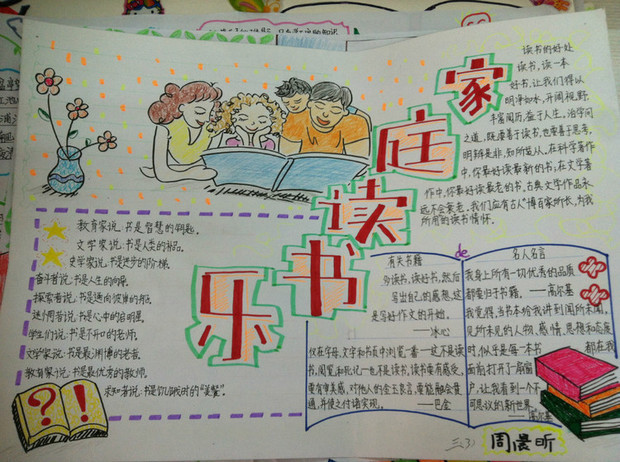 家庭读书乐
读书的好处
读书,读一本
好书,让我们得以
明净如水,开阔视野,
丰富阅历,益于人生。治学问
之道,既要善于读书,也要善于思考,
明辨是非,知所从入。在科学著作
中,你最好读最新的书;在文学著
作中,你最好读最老的书。古典文学作品永
远不会衰老。我们应有古人博百家所长,为我
所用的读书情怀。
教育家说:书是智慧的钥匙。
文学家说:书是人类的补品。
史学家说:书是进步的阶梯。
奋斗者说:书是人生的向导。
探索者说:书是通向彼岸的船。
迷惘者说:书是人中的启明星。
学生们说:书是不开口的老师。
文学家说:书是最渊博的老翁。
教育家说:书是最优秀的教师。
求知者说:书是饥饿时的“美餐”。
? !
有关书籍
de
名人名言
多读书,读好书,然后
写出自己的感想,这
是写好作文的开始。
——冰心
仅在字母、文字和书页中浏览一番——这不是读
书。阅览和死记——也不是读书。读书要有感受,
要有审美感,对他人的金玉良言,要能融会贯
通,并使之付诸实现。——巴金
我身上所有一切优秀的品质
都要归于书籍。——高尔基
我觉得,当书本给我讲到闻所未闻,
见所未见的人物、感情、思想和态度
时,似乎是每一本书
都在我
面前打开了一扇窗
户,让我看到一个不
可思议的新世界。
——高尔基
三(3)
周晨昕